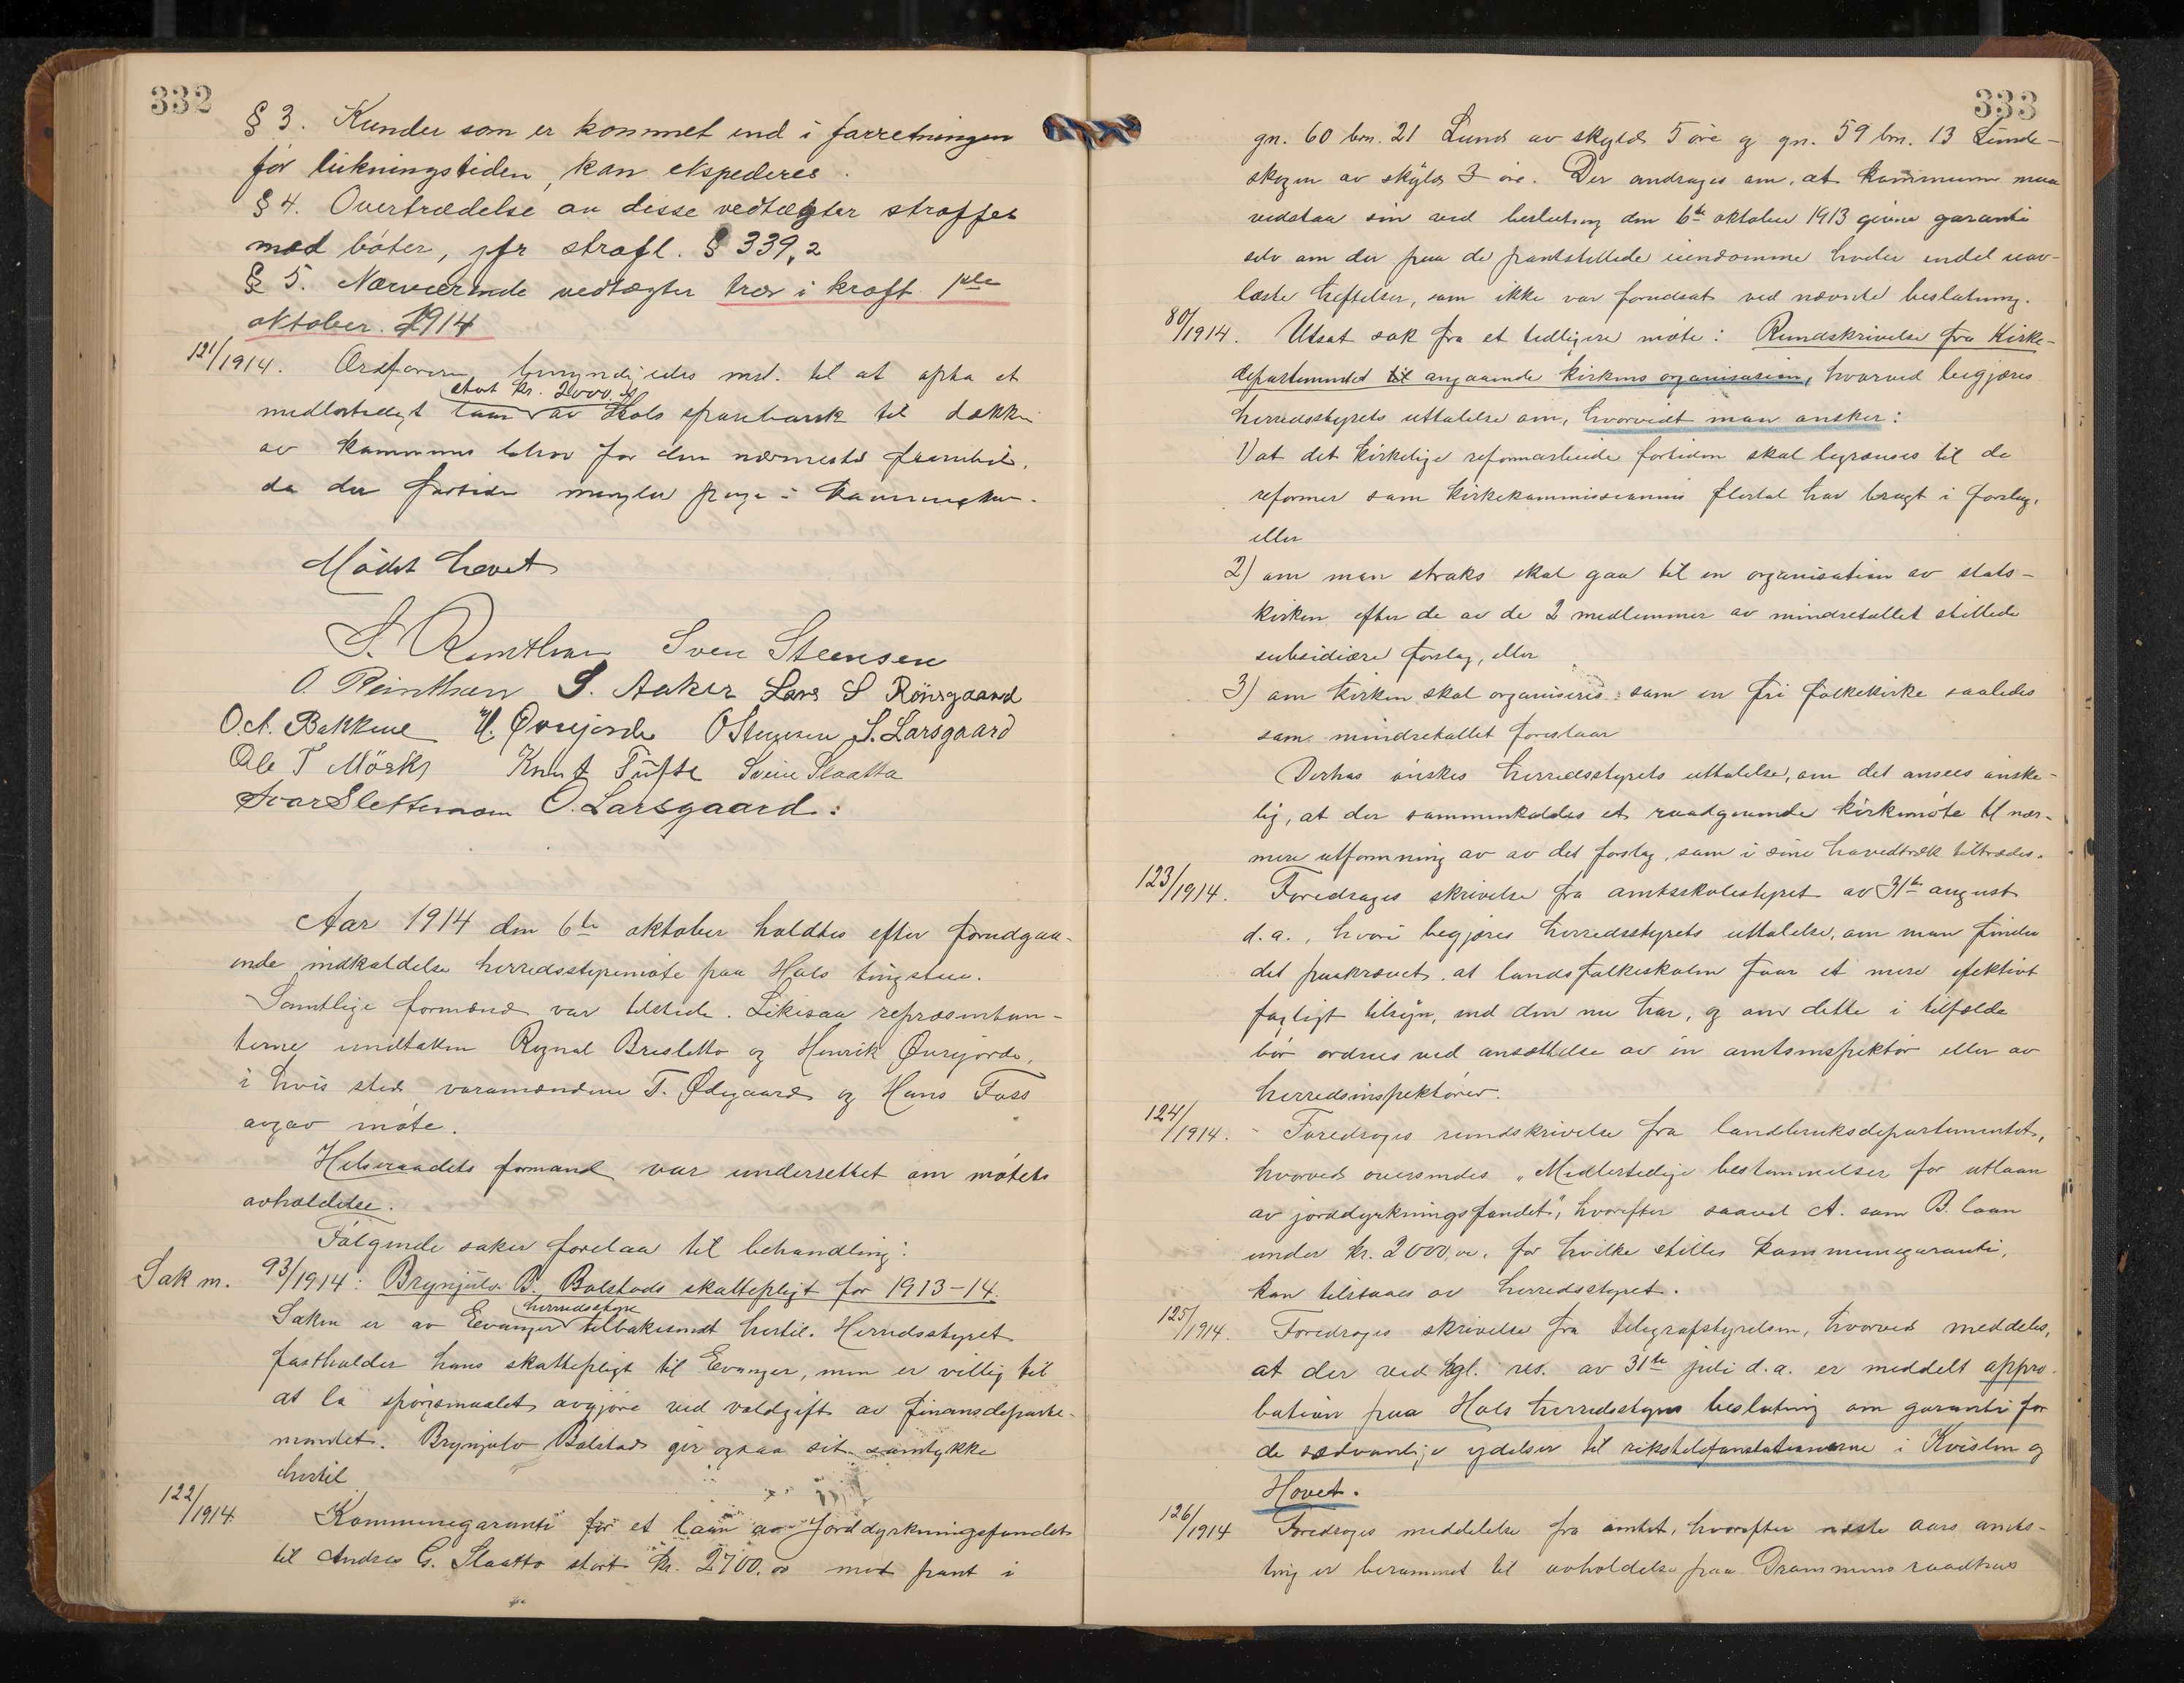 332
§ 3. Kunder som er kommet ind i forretningen
før lukningstiden, kan ekspederes.
§ 4. Overtrædelse av disse vedtægter straffes
med bøter, jfr strafl. § 339,2
§ 5. Nærværende vedtægter træ i kraft 1ste
oktober. 1914
121/1914. Ordføreren bemyndigedes med. til at opta et
stort kr. 2000,00
midlertidigt laan av Hols sparebank til dækken
av kommunens behov for den nærmeste fremtid,
da der fortiden mangler penge i kommunekas.
Mødet hevet
S. Reinthon Sven Steensen
O. Reinthon S. Aaker Lars S Rønsgaard
O.A. Bakkene H. Øvrejorde O Stensen S. Larsgaard
Ole T Mørk Knut Tufte Svein Slaatta
Ivar Slettemoen O. Larsgaard:
Aar 1914 den 6te oktober holdtes efter forudgaa-
ende indkaldelse herredsstyremøte paa Hols tingstue.
Samtlige formænd var tilstede. Likesaa repræsentan-
terne undtaken Ragnal Bresletto og Henrik Øvrejorde,
i hvis sted varamændene T. Ødegaard og Hans Foss
avgav møte.
Helseraadets formand var underrettet om møtets
avholdelse.
Følgende saker forelaa til behandling:
Sak nr. 93/1914: Brynjulv B. Bolstads skattepligt for 1913-14.
herredsstyre
Saken er av Evanger tilbakesendt hertil. Herredsstyret
fastholder hans skattepligt til Evanger, men er villig til
at la spørgsmaalet avgjøre ved voldgift av finansdeparte-
mentet. Brynjulv Bolstad gir ogsaa sit samtykke
hertil
122/1914. Kommunegaranti for et laan av Jorddyrkningsfondet
til Andres G. Slaatto stort kr. 2700,00 mot pant i
333
gn. 60 brn. 21 Lund av skyld 5 øre og gn. 59 brn. 13 Lunde-
skogen av skyld 3 øre. Der andrages om, at kommunen maa
vedstaa sin ved beslutning den 6te oktober 1913 givne garanti
selv om der paa de pantstillede eiendomme hviler endel uav-
læste heftelser, som ikke var forudsat ved nævnte beslutning.
80/1914. Utsat sak fra et tidligere møte: Rundskrivelse fra Kirke-
departementet til angaaende kirkens organisasion, hvorved begjæres
herredsstyrets uttalelse om, hvorvidt man ønsker:
1) at det kirkelige reformarbeide fortiden skal begrænses til de
reformer som kirkekommissionens flertal har bragt i forslag,
eller
2) om man straks skal gaa til en organisation av stats-
kirken efter de av de 2 medlemmer av mindretallet stillede
subsidiære forslag, eller
3) om kirken skal organiseres som en fri folkekirke saaledes
som mindretallet foreslaar
Derhos ønskes herredsstyrets uttalelse, om det ansees ønske-
lig, at der sammenkaldes et raadgivende kirkemøte til nær-
mere utformning av av det forslag, som i sine hovedtræk tiltrædes.
123/1914. Foredrages skrivelse fra amtsskolestyret av 31te august
d.a., hvori begjæres herredsstyrets uttalelse, om man finder
det paakrævet, at landsfolkeskolen faar et mere efektivt
fagligt tilsyn, end den nu har, og om dette i tilfælde
bør ordnes ved ansættelse av en amtsinspektør eller av
herredsinspektører.
124/1914. - Foredrages rundskrivelse fra landbruksdepartementet,
hvorved oversendes "Midlertidige bestemmelser for utlaan
av jorddyrkningsfondet", hvorefter saavel A. som B. laan
under kr. 2000,00. for hvilke stilles kommunegaranti,
kan tilstaaes av herredsstyret.
125/1914. Foredrages skrivelse fra telegrafstyrelsen, hvorved meddeles,
at der ved kgl. res. av 31te juli d.a. er meddelt appro-
bation paa Hols herredsstyres beslutning om garanti for
de sædvanlige ydelser til rikstelefonstationerne i Kvislen og
Hovet.
126/1914 Foredrages meddelelse fra amtet, hvorefter næste aars amts-
ting er berammet til avholdelse paa Drammens raadhus